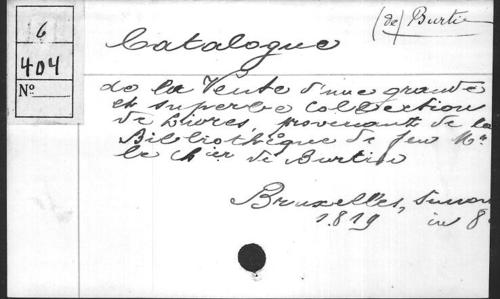 6
404
No
(de) Burtin
Catalogue
de la Vente d'une grande
et superbe Collection
de Livres, provenant de la
Bibliothèque de feu Mr
le Chier de Burtin
Bruxelles,
1819 in 8